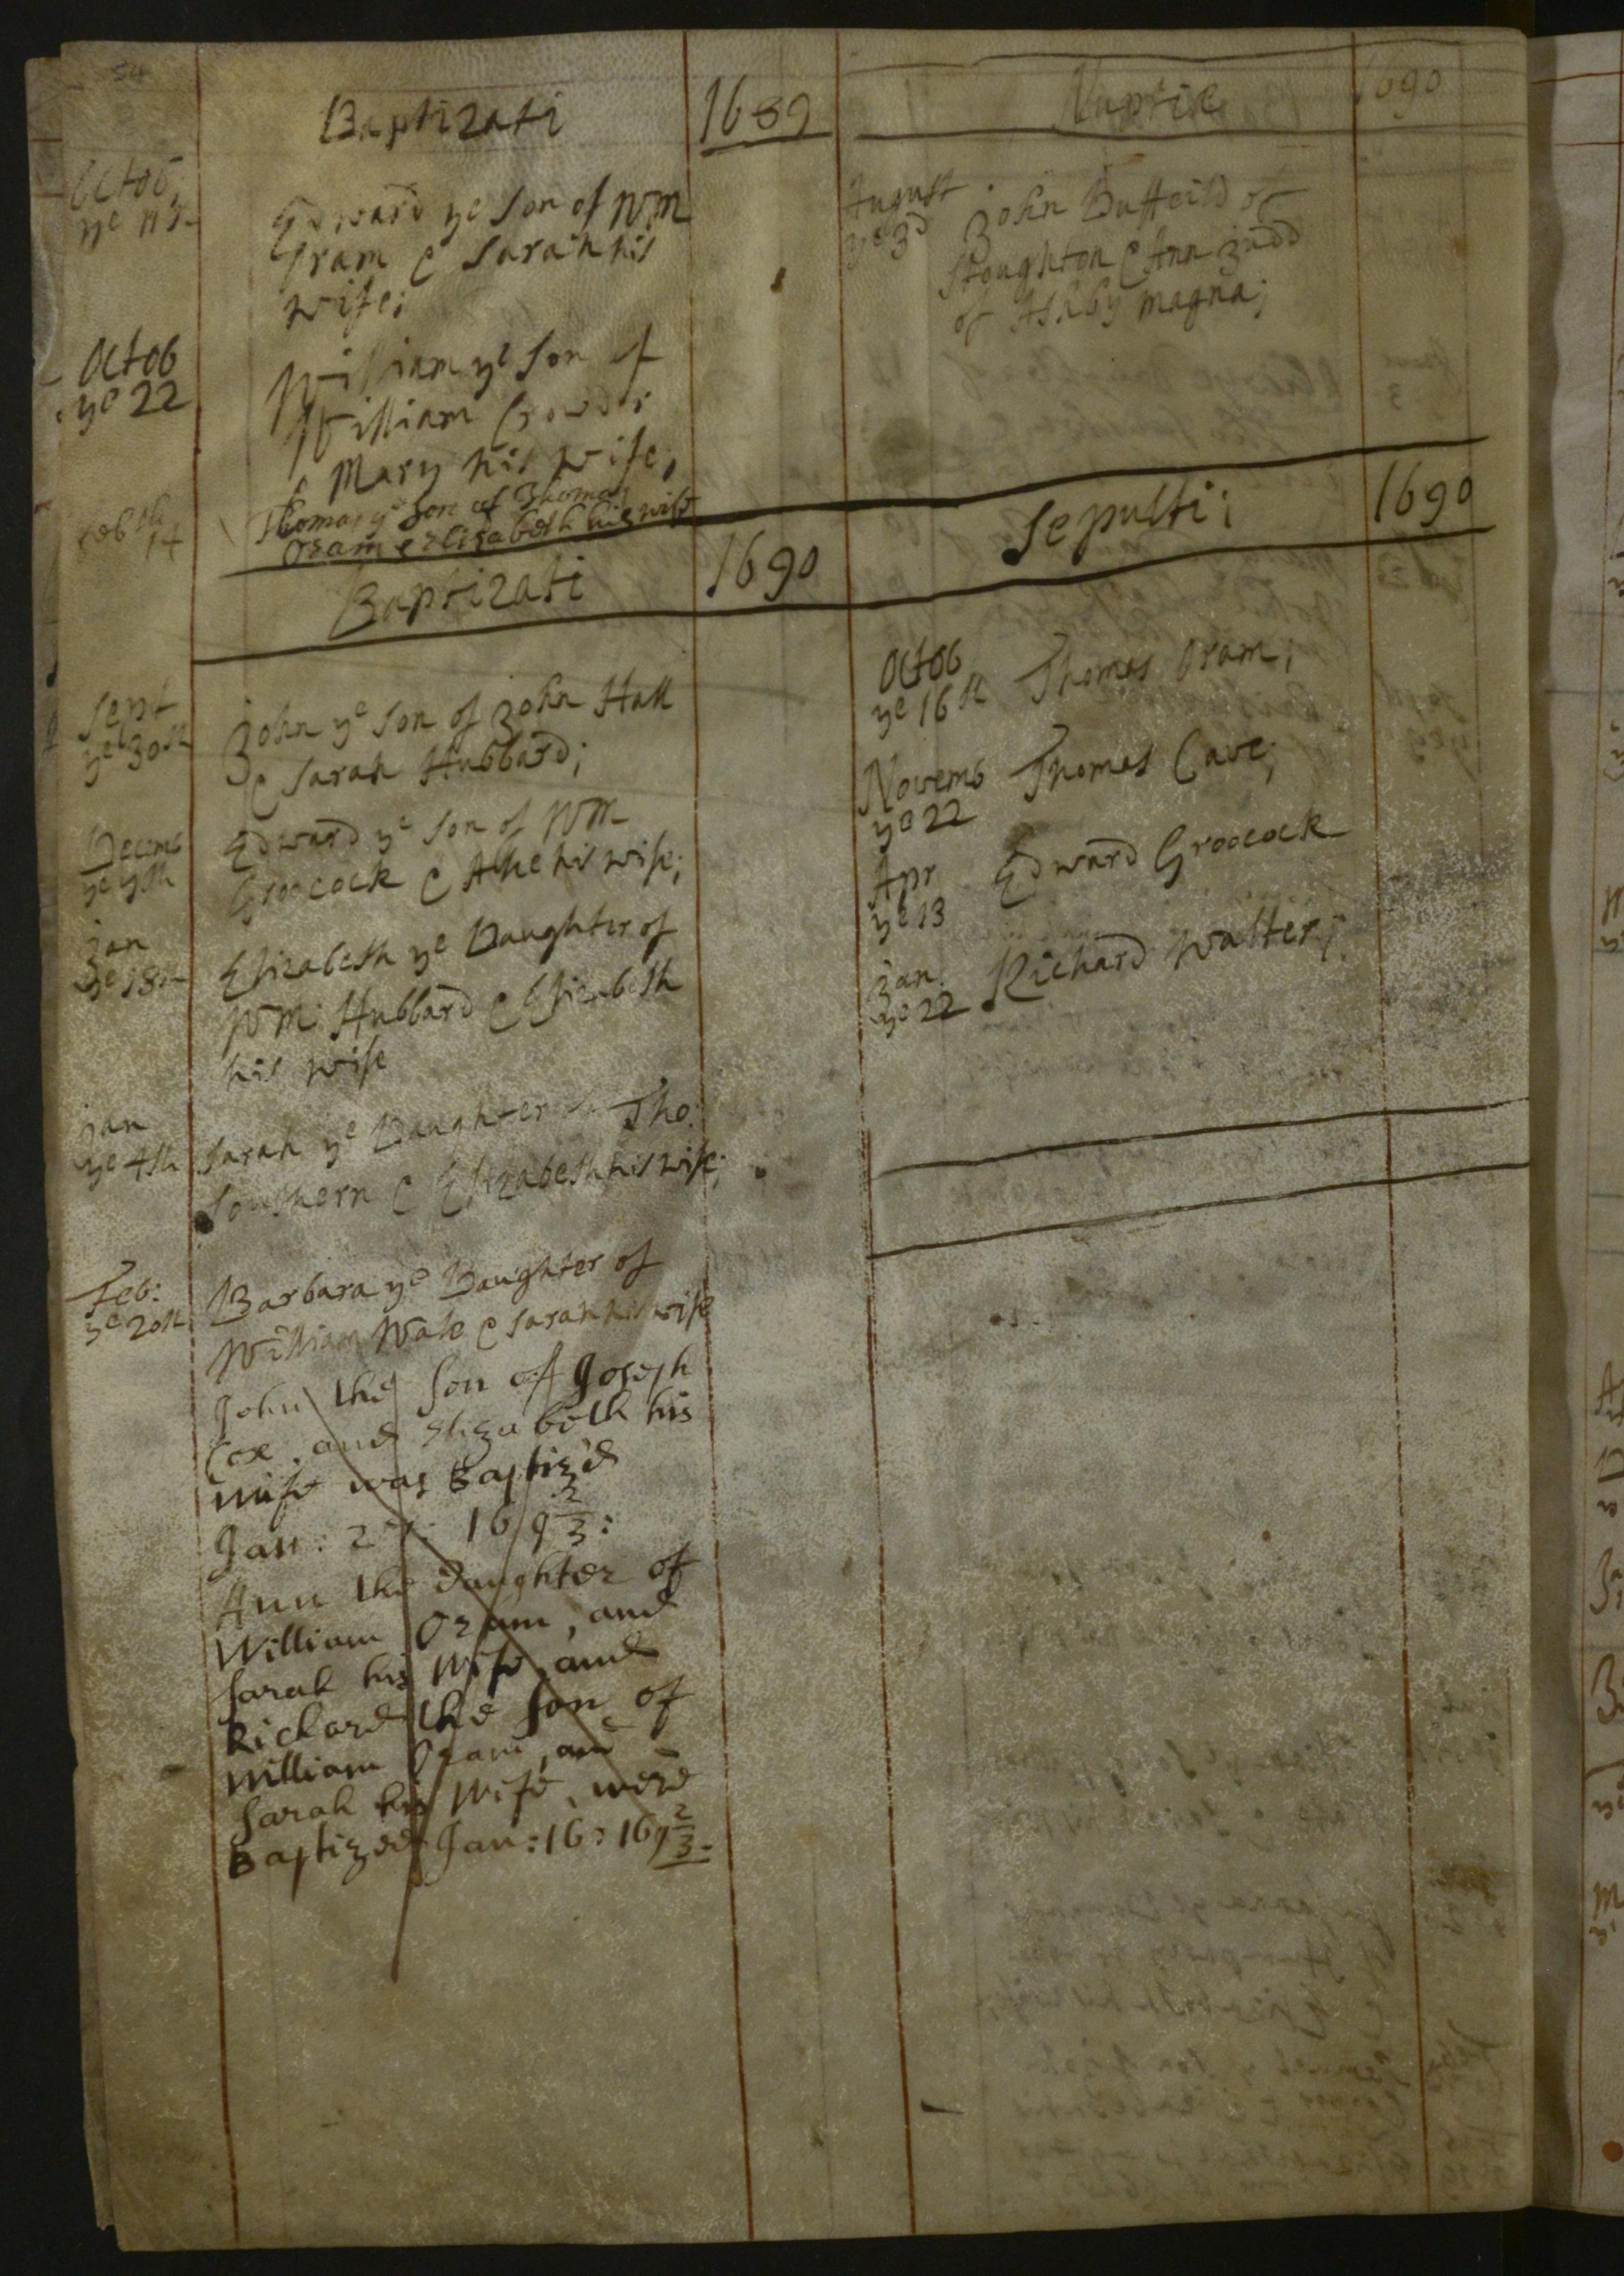 54
Baptizati 1689
Octob:
ye
Edward ye Son of Wm
Oram & Sarah his
wife;
Octob
ye 22
William ye Son of
William Crowder
& Mary his wife,
Feb th
14
Thomas ye Son of Thomas
Oram & Elizabeth his wife
Baptizati 1690
Sept
ye 30th
John ye Son of John Hall
& Sarah Hubbard;
Decemb
ye 9th
Edward ye Son of Wm
Groocock & his wife;
Jan
ye 18
Elizabeth ye Daughter of
Wm Hubbard & Elizabeth
his wife
Jan
ye 4th
Sarah ye Daughter Tho:
Southern & Elizabeth his wife;
Feb:
ye 20th
Barbara ye Daughter of
William Wale & Sarah his wife
John the Son of Joseph
Cox, and Elizabeth his
wife was Baptiz'd
Jan: 27: 169 2/3:
Ann the daughter of
William Oram, and
Sarah his Wife, and
Richard the Son of
William Oram, and
Sarah his Wife, were
Baptized Jan: 16: 169 2/3.
Nuptiæ 1690
August
ye 3d
John Buffeild of
Stoughton & Ann Judd
of Ashby magna;
Sepulti: 1690
Octob
ye 16th Thomas Oram;
Novemb Thomas Cave;
ye 22
Apr Edward Groocock
ye 13
Jan: Richard Walter;
ye 22